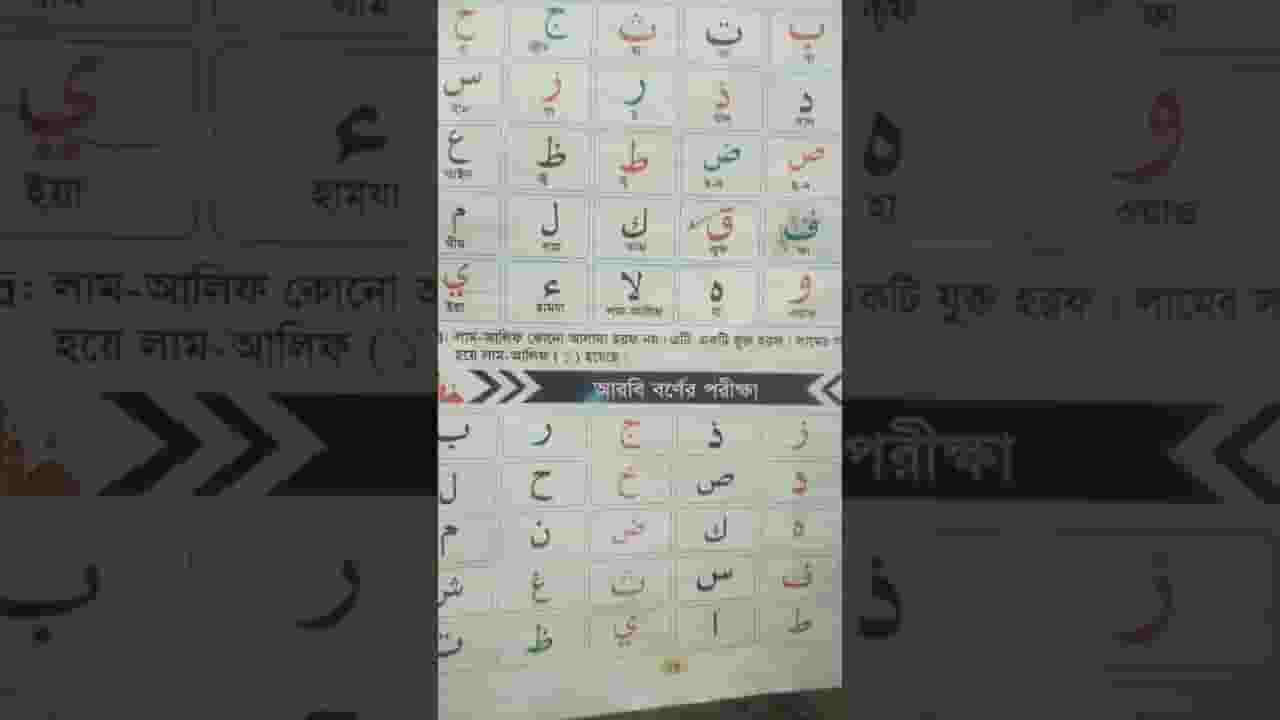 ب ت ث ج ح
د ذ ر ز س
দাল
ص ض ط ظ ع
ف ق ك ل م
ফা ক্বফ কাফ লাম মীম
و ه لا ء ي
ওয়াও হা লাম-আলিফ হামযা ইয়া
লাম-আলিফ কোনো আলাদা হরফ নয়। এটি একটি যুক্ত হরফ। লামের
হয়ে লাম-আলিফ ( ) হয়েছে।
আরবি বর্ণের পরীক্ষা
ز ذ ج ر ب
د ص خ ح ل
ه ك ض ن م
ف س ث غ ش
ط ا ي ظ ت